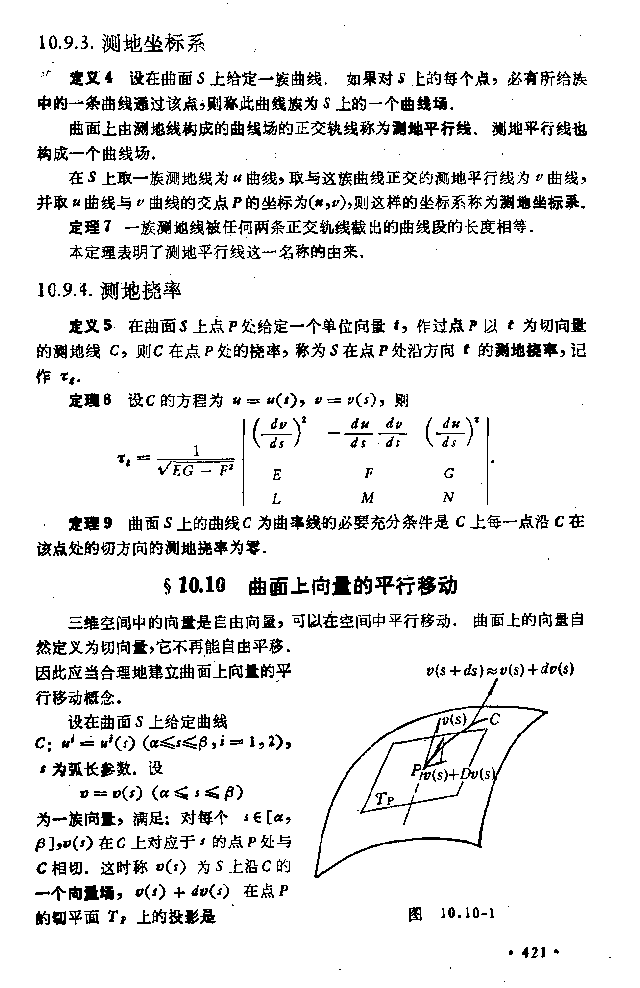 10.9.3. 测地坐标系
定义4 设在曲面 S 上给定一族曲线. 如果对 S 上的每个点, 必有所给族
中的一条曲线通过该点,则称此曲线族为 S 上的一个曲线场.
曲面上由测地线构成的曲线场的正交轨线称为测地平行线. 测地平行线也
构成一个曲线场.
在 S 上取一族测地线为 u 曲线, 取与这族曲线正交的测地平行线为 v 曲线,
并取 u 曲线与 v 曲线的交点 P 的坐标为(u,v),则这样的坐标系称为测地坐标系.
定理7 一族测地线被任何两条正交轨线截出的曲线段的长度相等.
本定理表明了测地平行线这一名称的由来.
10.9.4. 测地挠率
定义5 在曲面S 上点P处给定一个单位向量 t, 作过点P 以 t 为切向量
的测地线 C, 则C 在点P处的挠率, 称为S在点P处沿方向 t 的测地挠率, 记
作 τg.
定理8 设C 的方程为 u = u(s), v = v(s), 则
τg = 1/√(EG − F²) | (dv/ds)² −du/ds dv/ds (du/ds)² |
E F G
L M N
定理9 曲面 S 上的曲线C 为曲率线的必要充分条件是 C 上每一点沿 C 在
该点处的切方向的测地挠率为零.
§10.10 曲面上向量的平行移动
三维空间中的向量是自由向量, 可以在空间中平行移动. 曲面上的向量自
然定义为切向量,它不再能自由平移.
因此应当合理地建立曲面上向量的平
行移动概念.
设在曲面 S 上给定曲线
C: uⁱ = uⁱ(s) (α≤s≤β, i = 1, 2),
s 为弧长参数. 设
v = v(s) (α ≤ s ≤ β)
为一族向量, 满足: 对每个 s∈[α,
β],v(s) 在 C 上对应于 s 的点 P 处与
C 相切. 这时称 v(s) 为 S 上沿 C 的
一个向量场, v(s) + dv(s) 在点 P
的切平面 TP 上的投影是
v(s + ds)≈v(s) + dv(s)
v(s)
C
P
v(s)+Dv(s)
TP
图 10.10-1
• 421 •